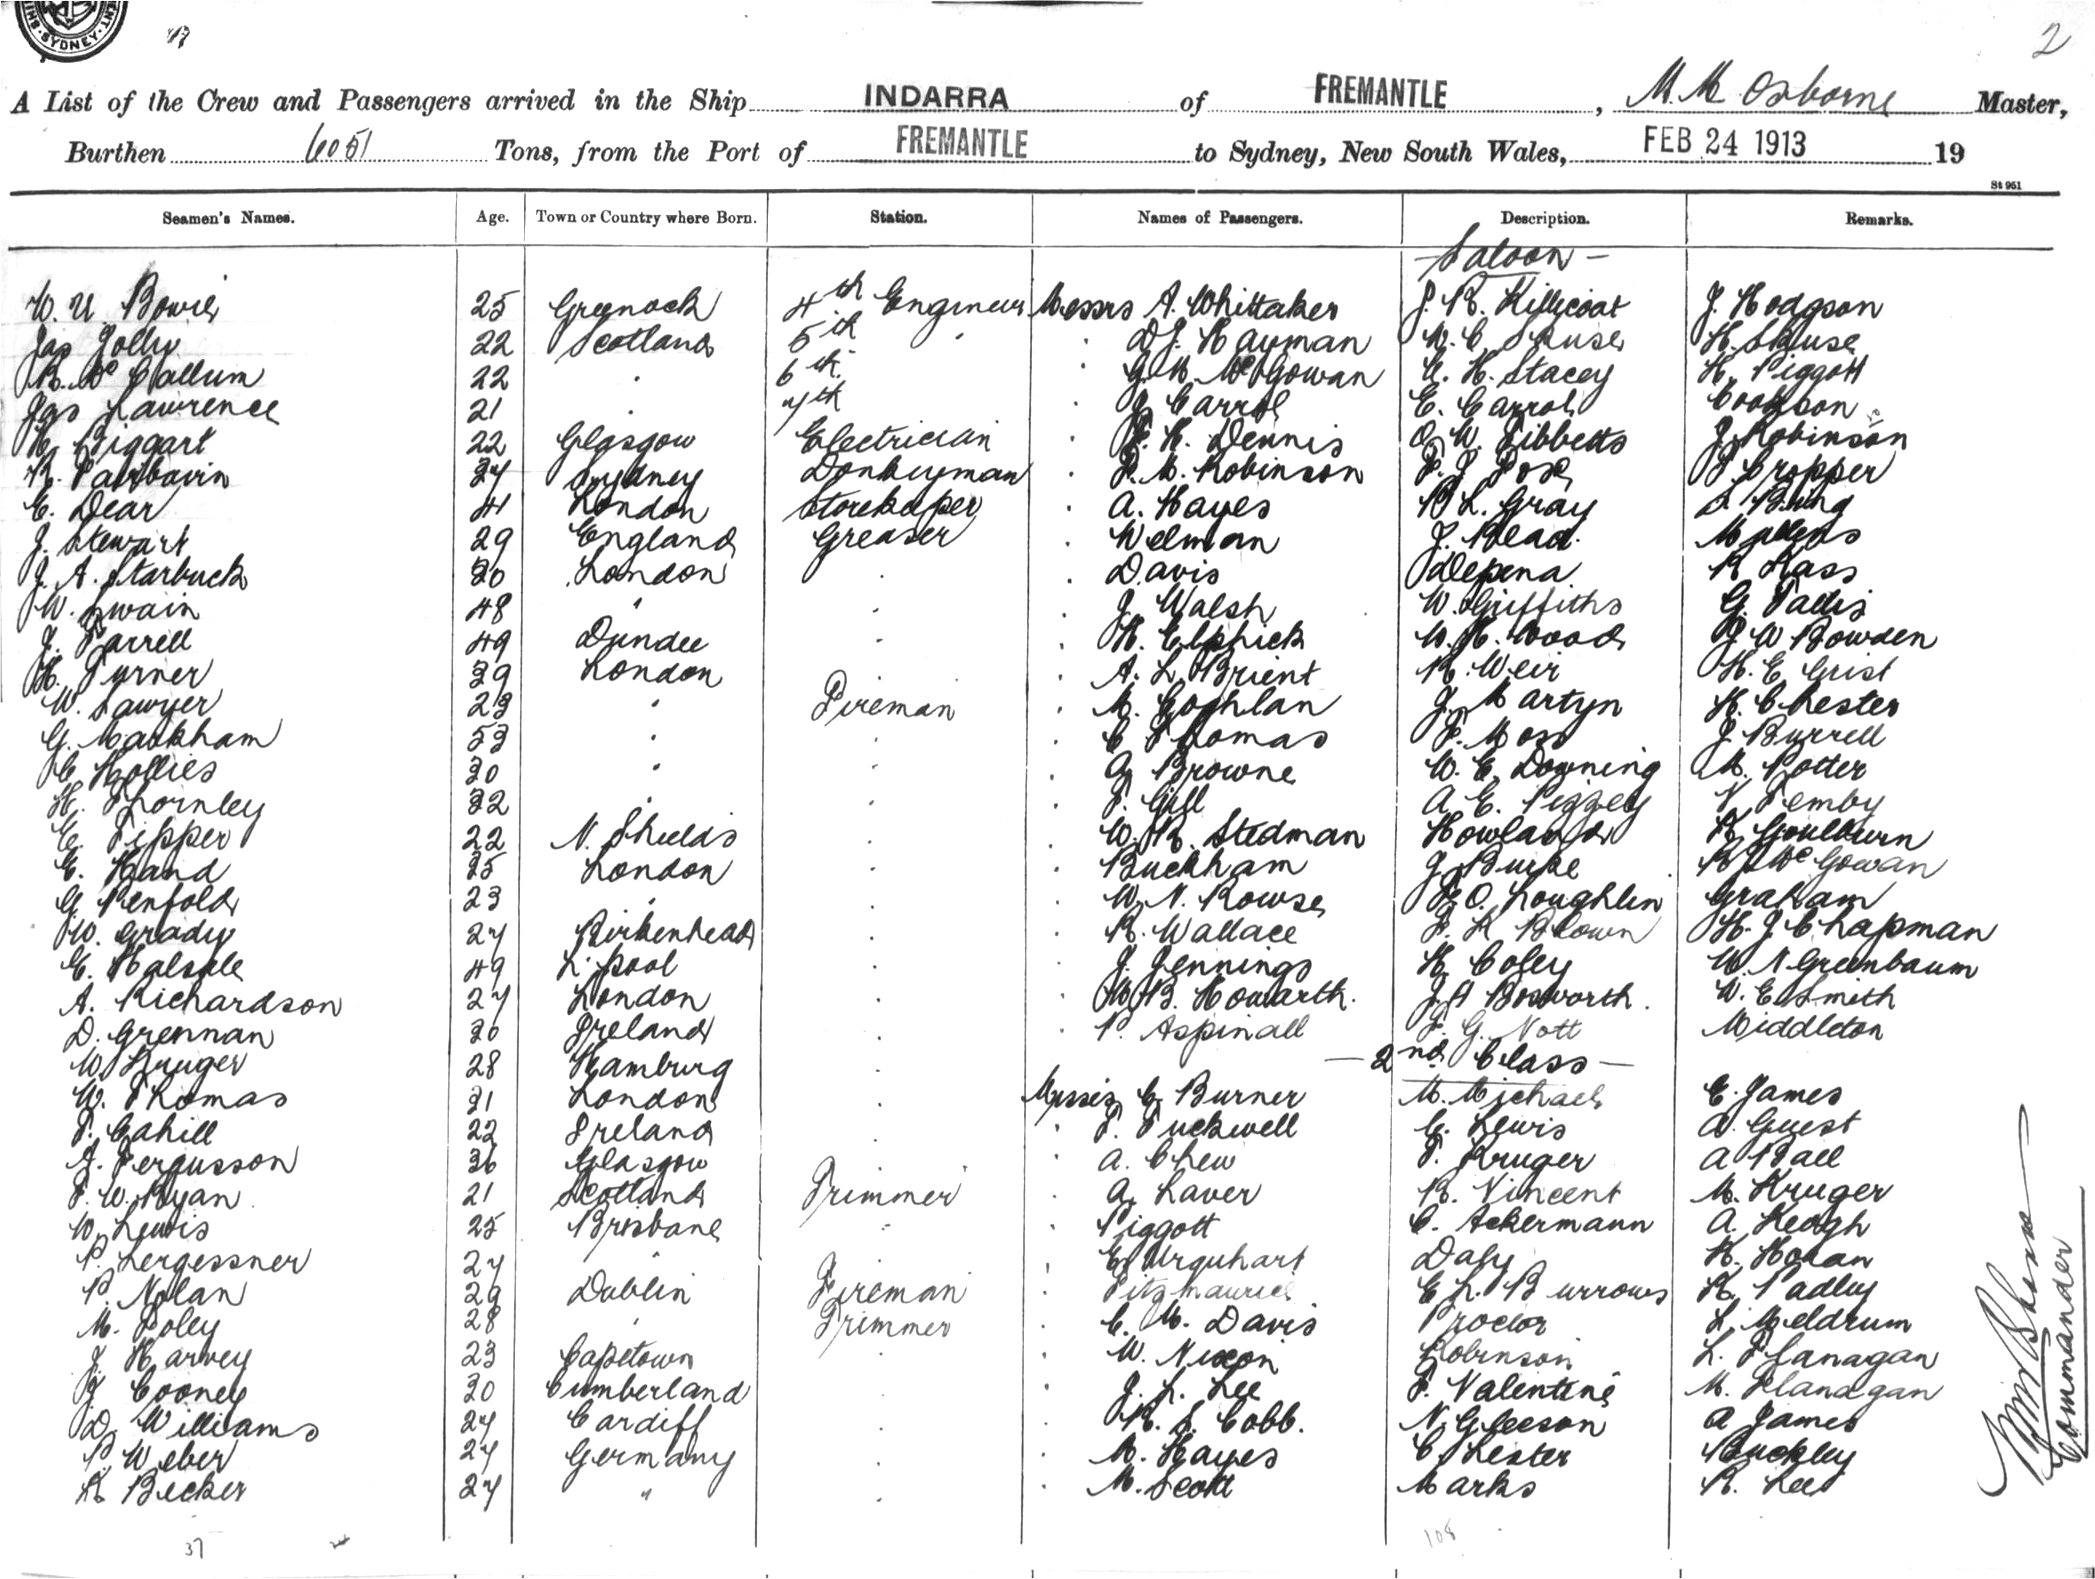 SYDNEY
2
A List of the Crew and Passengers arrived in the Ship INDARRA of FREMANTLE, M. M. Osborne Master,
Burthen 6051 Tons, from the Port of FREMANTLE to Sydney, New South Wales, FEB 24 1913 19
St 961
Seamen's Names. Age. Town or Country where Born. Station. Names of Passengers. Description. Remarks.
Saloon -
W. U. Bowie 25 Greenock 4th Engineer Messrs A. Whittaker J. R. Killicoat J. Hodgson
Jas Jolly 22 Scotland 5th " D J. Hayman W. C. Skuse H. Skuse
R. McCallum 22 " 6th " G. M. McGowan C. H. Stacey H. Piggott
Jas Lawrence 21 " 7th " J. Carrol E. Carrol Cookson
H. Biggart 22 Glasgow Electrician " F. H. Dennis O. W. Tibbetts J. Robinson
R. Fairbairn 37 Sydney Donkeyman " F. M. Robinson F. J. J. Cropper
E. Dear 41 London Storekeeper " A. Hayes B L. Gray
J. Stewart 29 England Greaser " Welman J. Read
J. A. Starbuck 30 London " " Davis Depena R Kass
W. Swain 48 " " " J. Walsh W. Griffiths G.
J. Farrell 49 Dundee " " H. Elphick W. H. Wood J W Bowden
H. Turner 39 London " A. L. Brient R. Weir H. E Grist
W. Sawyer 23 " Fireman " M. Coghlan J. Martyn H. Chester
G. Markham 53 " " " C Thomas F. Moss J Burrell
C. Hollies 30 " " " A Browne W. E. Downing M. Potter
H. Thornley 32 " " " F. Gill A. E. Piggey Temby
E. Tipper 22 N. Shields " " W. R. Stedman Howland H Goulburn
E. Hand 35 London " " Buckham J. Burke R J McGowan
G. Penfold 23 " " " W. N. Rowse F O. Loughlin Graham
W. Grady 27 Birkenhead " " R. Wallace F. R Brown H. J Chapman
E. Halsale 49 L'pool " " J. Jennings H. Coley W. N Greenbaum
A. Richardson 27 London " " W B. Howarth. J. A Bosworth. W. E Smith
D. Grennan 30 Ireland " " P. Aspinall F. G. Nott Middleton
- 2nd Class -
W. Kruger 28 Hamburg "
W. Thomas 31 London " Messrs C. Burner M. Michael E. James
T. Cahill 22 Ireland " " F. Tuckwell C. Lewis A. Guest
J. Fergusson 36 Glasgow " A. Chew F. Kruger A Ball
F. W. Ryan 21 Scotland Trimmer " A. Laver R. Vincent M. Kruger
W. Lewis 25 Brisbane " " Piggott C. Ackermann A. Keogh
P. Lergessner 27 " " E. Urquhart Daly H. Horan
P. Nolan 29 Dublin Fireman " Fitzmaurice E L. Burrows H. Padley
M. Foley 28 " Trimmer " C. M. Davis Proctor L. Meldrum
J. Harvey 23 Capetown " " W. Nixon Robinson L. Flanagan
J. Cooney 30 Cumberland " " J. L. Lee F. Valentine M. Flanagan
D. Williams 27 Cardiff " " R. S. Cobb. N. Gleeson A James
P. Weber 27 Germany " " M. Hayes C Lester Buckley
K Becker 27 " " " M. Scott Marks R. Lee
Commander
37 108